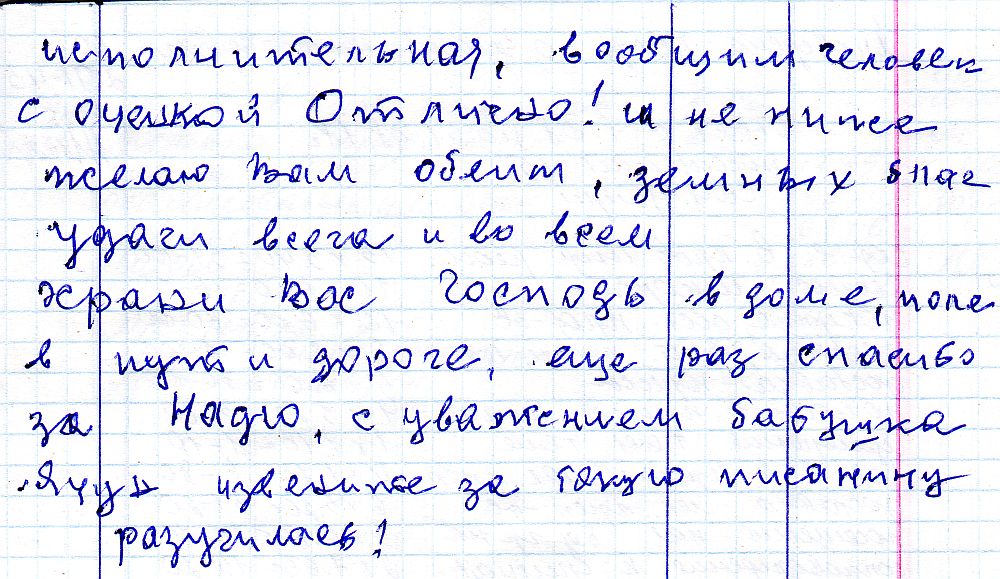 исполнительная, вообщим человек
с оценкой Отлично! и не ниже
желаю Вам обеим, земных благ
удачи всега и во всем
храни Вас Господь в доме, поле
в пути дороге, еще раз спасибо
за Надю, с уважением бабушка
извените за такую писанину
разучилась!